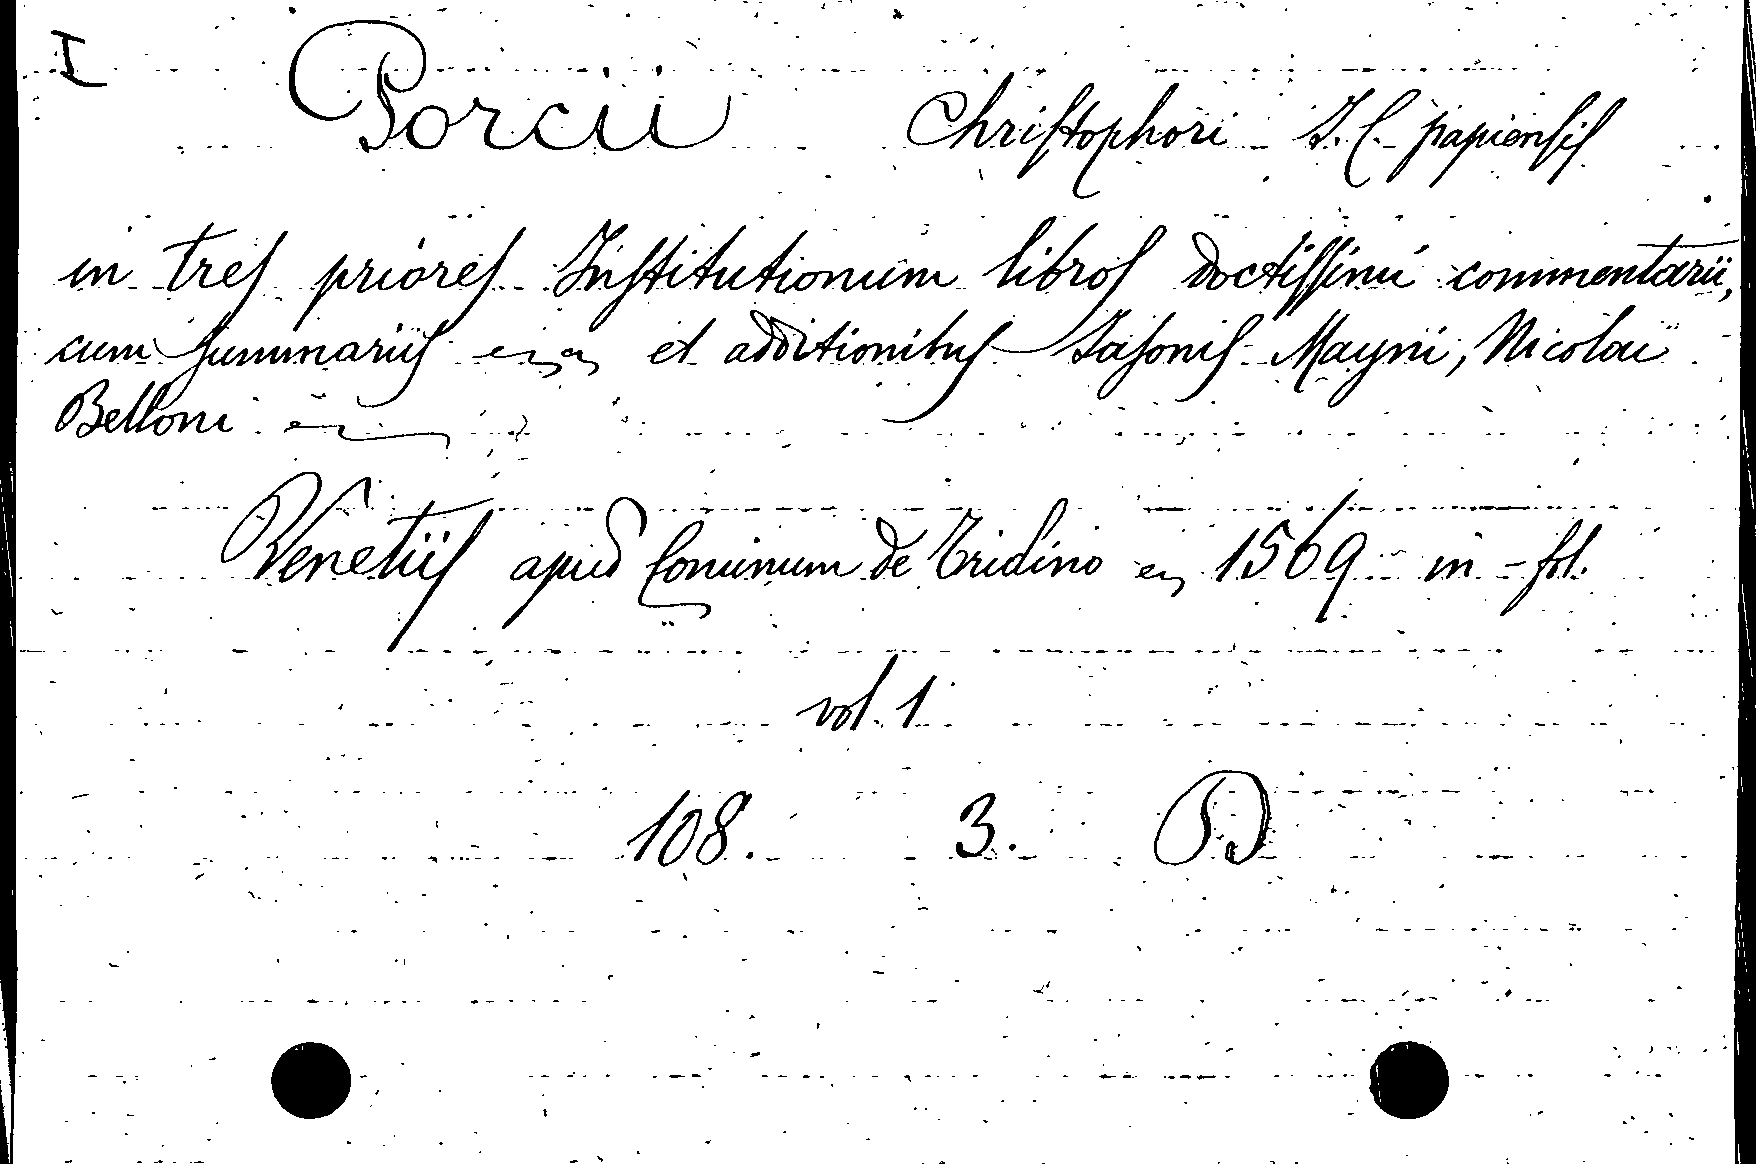 I
Porcii Christophori I. C. papiensis
in tres priores Institutionum libros doctissimi commentarii,
cum summariis et additionibus Iasonis Mayni, Nicolai
Belloni
Venetiis apud Cominum de Tridino 1569 in-fol.
vol. 1
108. 3. D